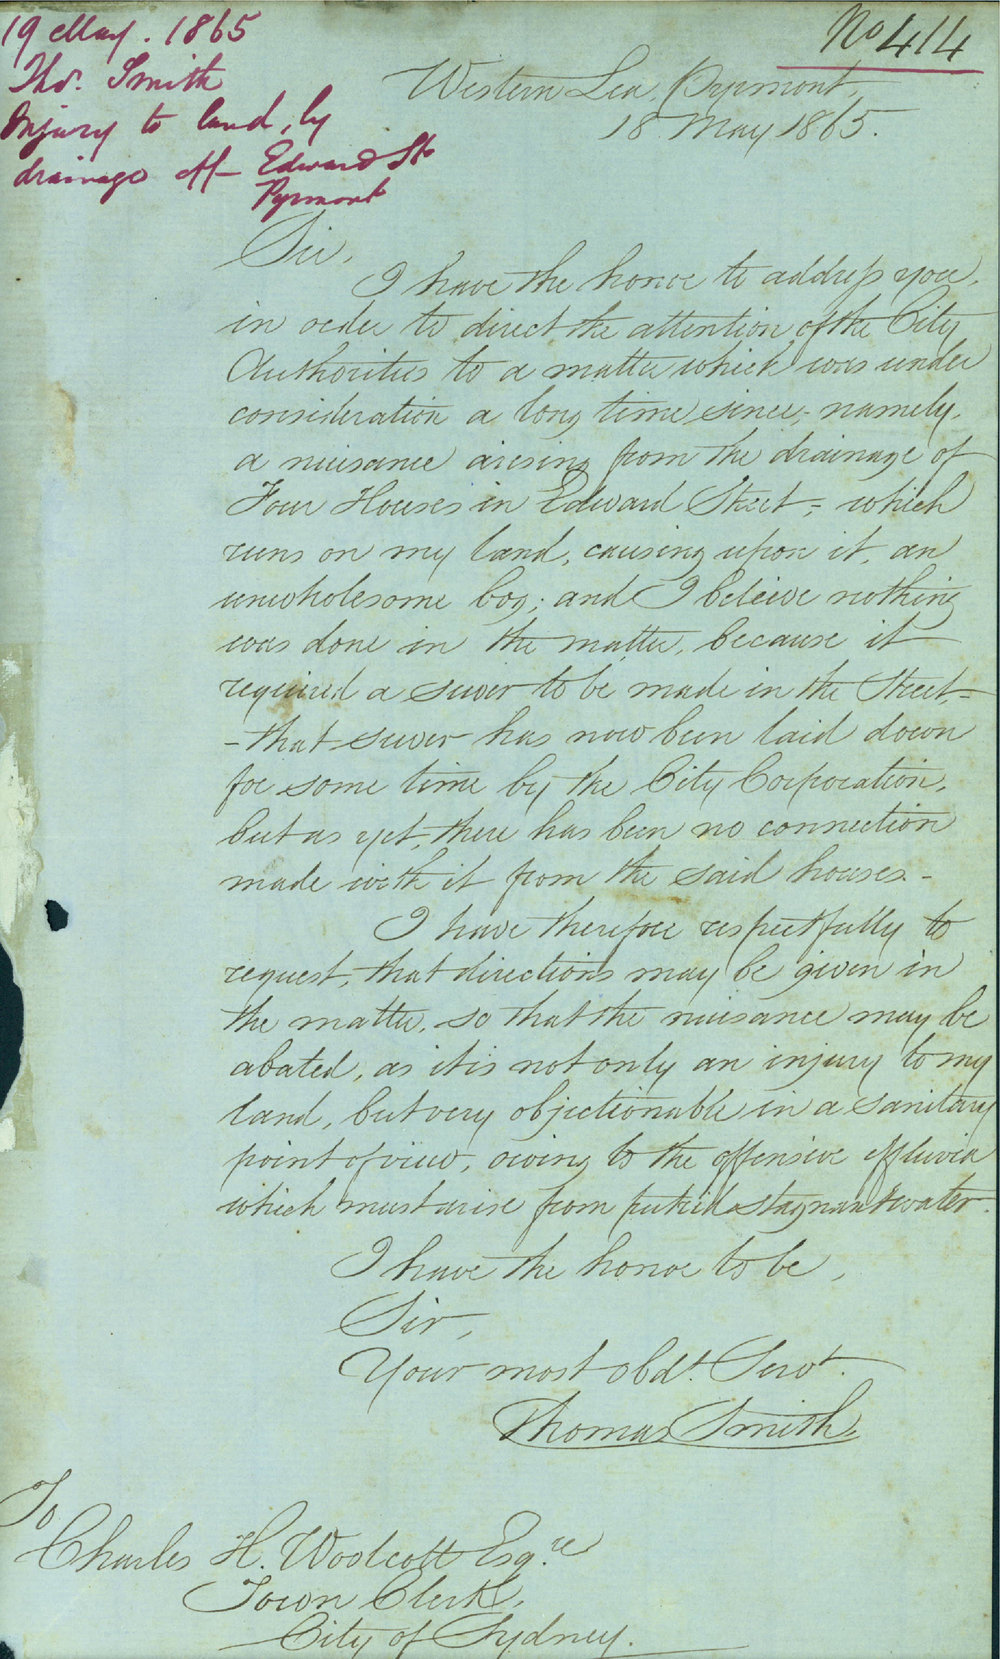 19 May. 1865
Thos. Smith
Injury to land, by
drainage off Edward St
Pyrmont
No 414
Western Lea, Pyrmont,
18 May 1865.
Sir,
I have the honor to address you,
in order to direct the attention of the City
Authorities to a matter which was under
consideration a long time since,- namely,
a nuisance arising from the drainage of
Four Houses in Edward Street,- which
runs on my land, causing upon it, an
unwholesome bog; and I beleive nothing
was done in the matter, because it
required a sewer to be made in the Street,-
- that sewer has now been laid down
for some time by the City Corporation,
but as yet, there has been no connection
made with it from the said houses.-
I have therefore respectfully to
request, that directions may be given in
the matter, so that the nuisance may be
abated, as it is not only an injury to my
land, but very objectionable in a sanitary
point of view, owing to the offensive effluvia
which must arise from putrid stagnant water.
I have the honor to be,
Sir,
Your most obdt. Servt.
Thomas Smith
To
Charles H. Woolcott Esqre
Town Clerk,
City of Sydney.